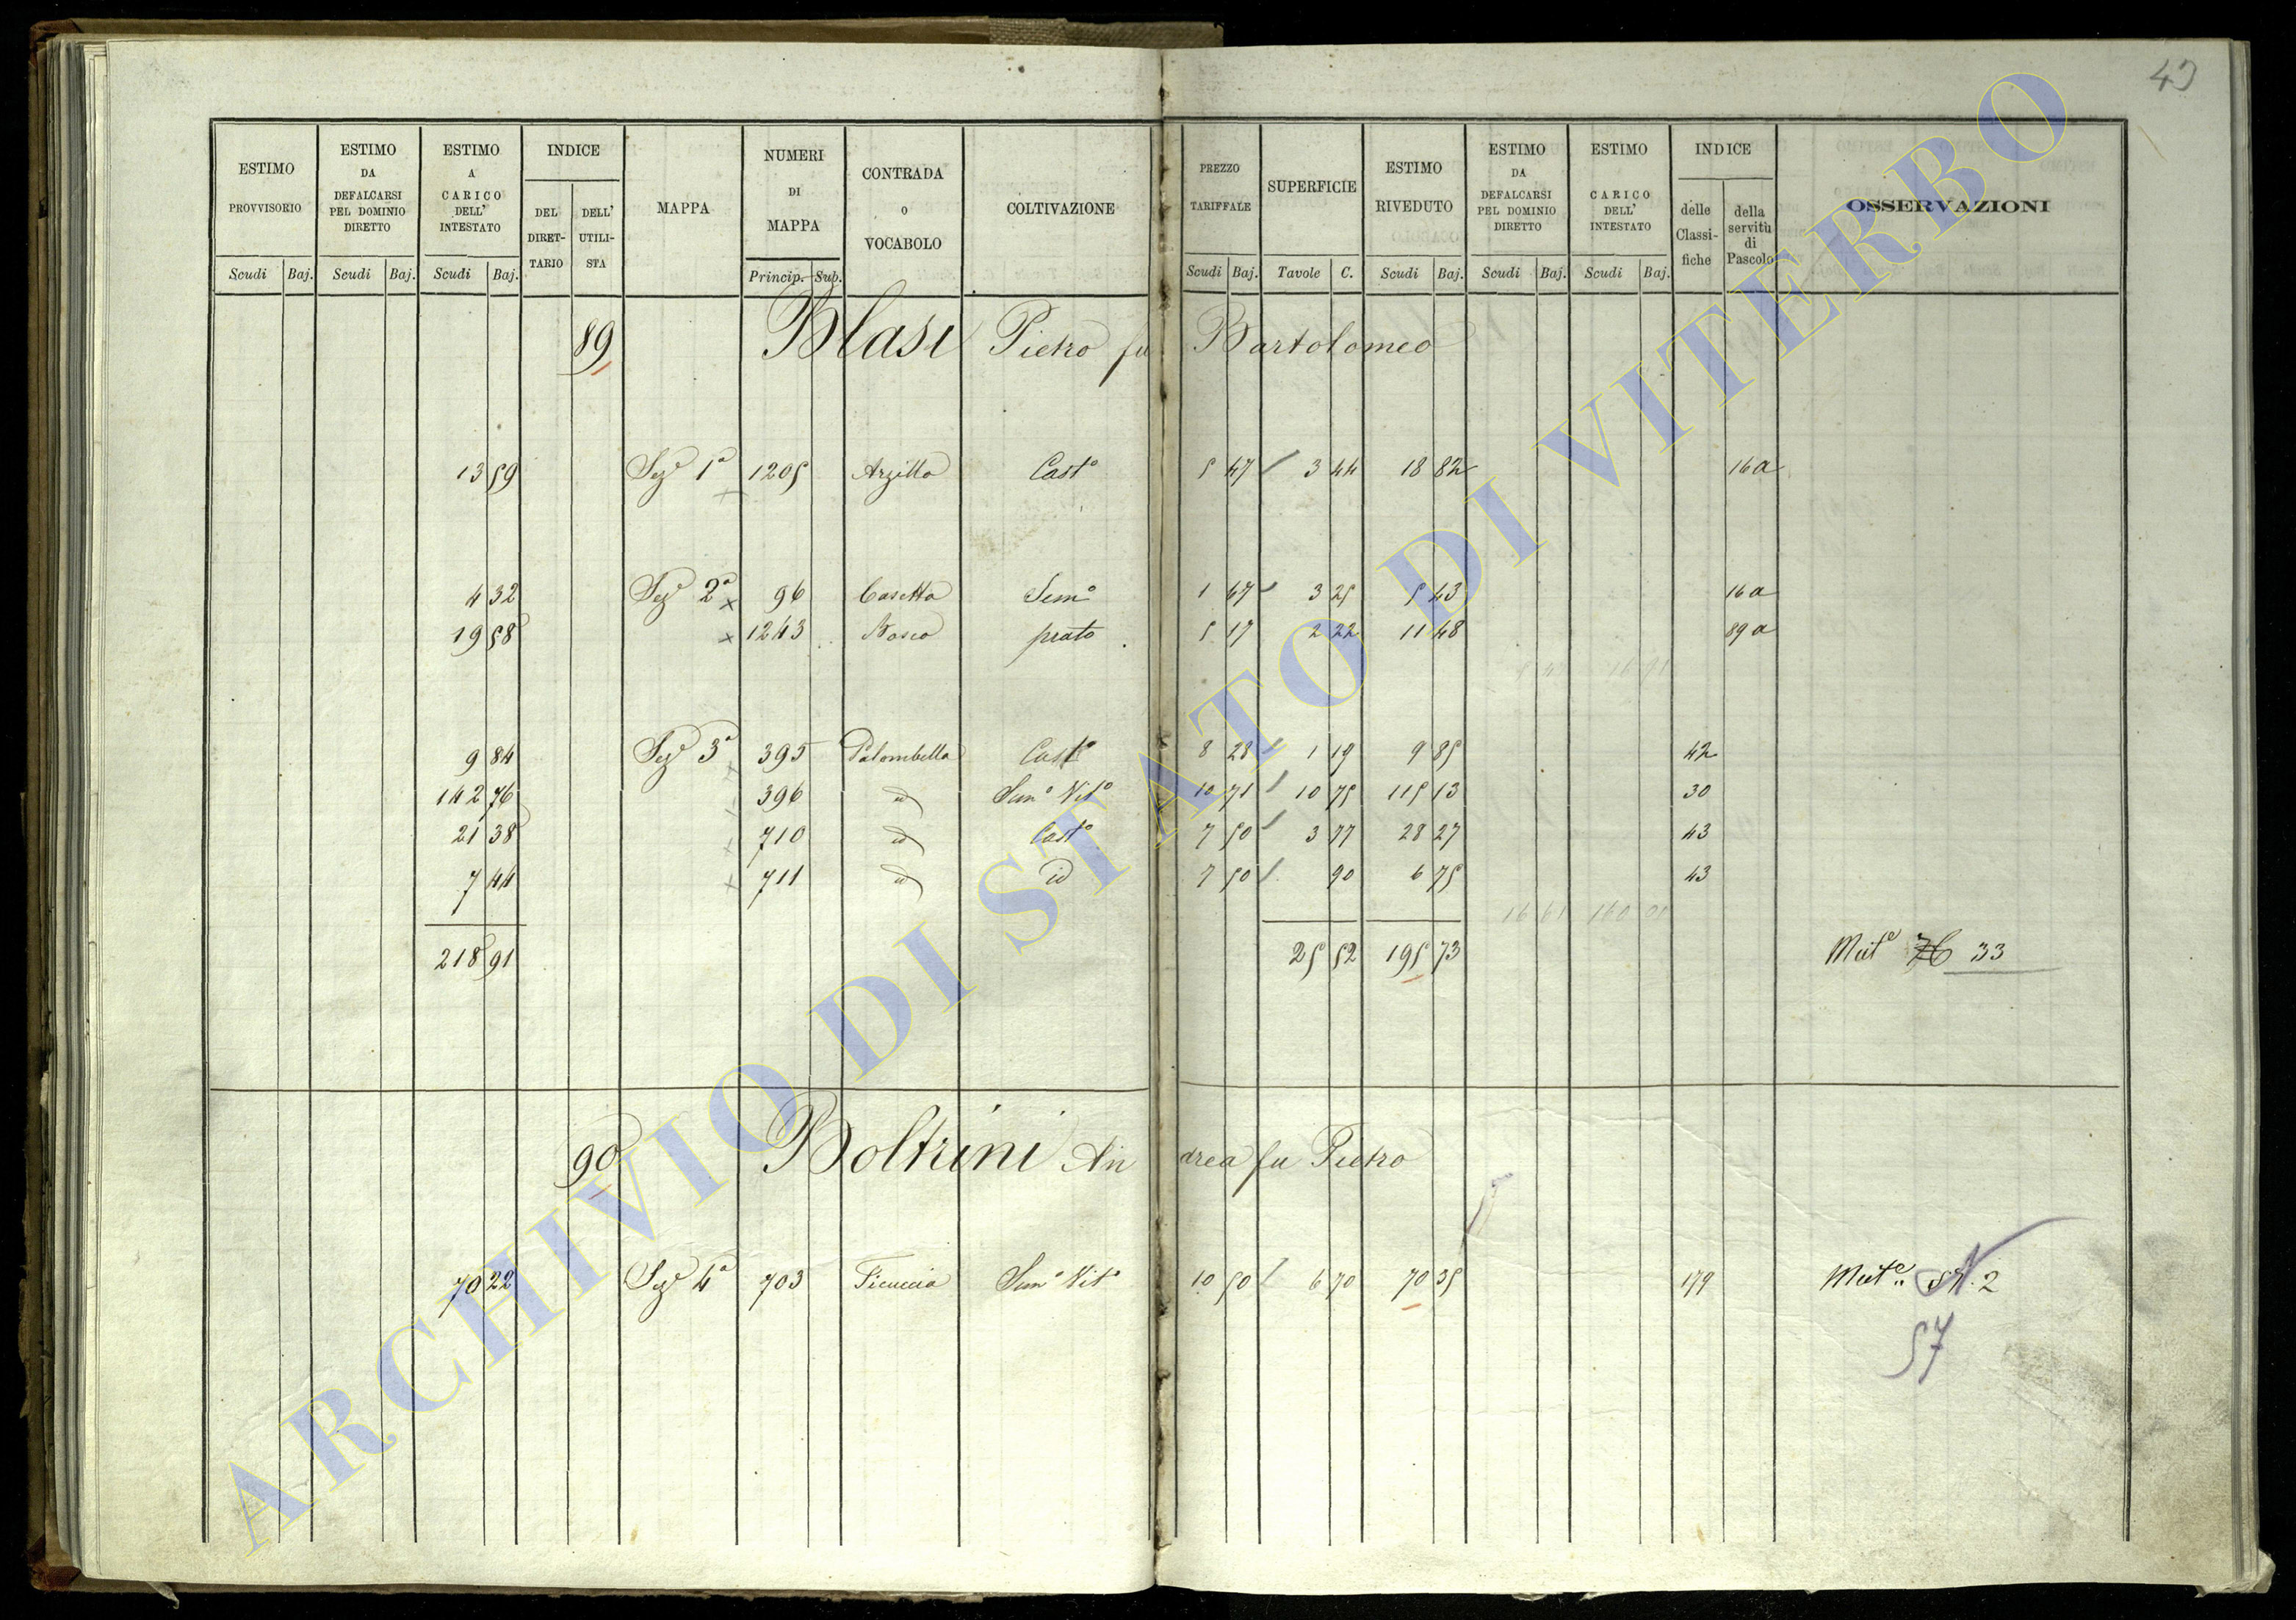 43
ESTIMO PROVVISORIO Scudi Baj.
ESTIMO DA DEFALCARSI PEL DOMINIO DIRETTO Scudi Baj.
ESTIMO A CARICO DELL' INTESTATO Scudi Baj.
INDICE DEL DIRET- TARIO DELL' UTILI- STA
MAPPA
NUMERI DI MAPPA Princip. Sub.
CONTRADA o VOCABOLO
COLTIVAZIONE
PREZZO TARIFFALE Scudi Baj.
SUPERFICIE Tavole C.
ESTIMO RIVEDUTO Scudi Baj.
ESTIMO DA DEFALCARSI PEL DOMINIO DIRETTO Scudi Baj.
ESTIMO A CARICO DELL' INTESTATO Scudi Baj.
INDICE delle Classi- fiche della servitù di Pascolo
OSSERVAZIONI
89 Blasi Pietro fu Bartolomeo
13 59 Seze 1a 1205 Argillo Casto 5 47 3 44 18 82 16a
4 32 Seze 2a 96 Casetta Semo 1 67 3 25 5 43 16a
19 58 1243 Nasco prato 5 17 2 22 11 48 89a
9 84 Seze 3a 395 Palombella Casto 8 28 1 19 9 85 42
142 76 396 id Semo Vito 10 71 10 75 115 13 30
21 38 710 id Casto 7 50 3 77 28 27 43
7 44 711 id id 7 50 90 6 75 43
218 91 25 52 195 73 Mute 76 33
90 Boltrini Andrea fu Pietro
70 22 Seze 4a 703 Ficuccia Semo Vito 10 50 6 70 70 35 179 Mute 2
57
ARCHIVIO DI STATO DI VITERBO